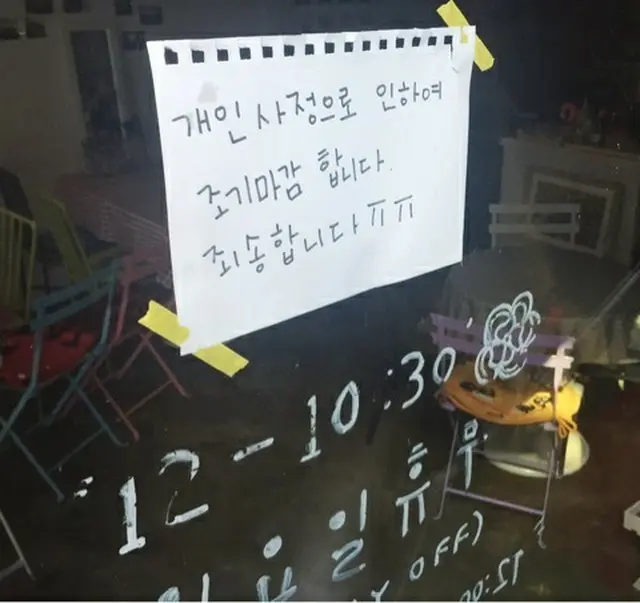 개인 사정으로 인하여
조기마감 합니다.
죄송합니다 ㅠㅠ
12 - 10:30
요일 휴무
OFF)